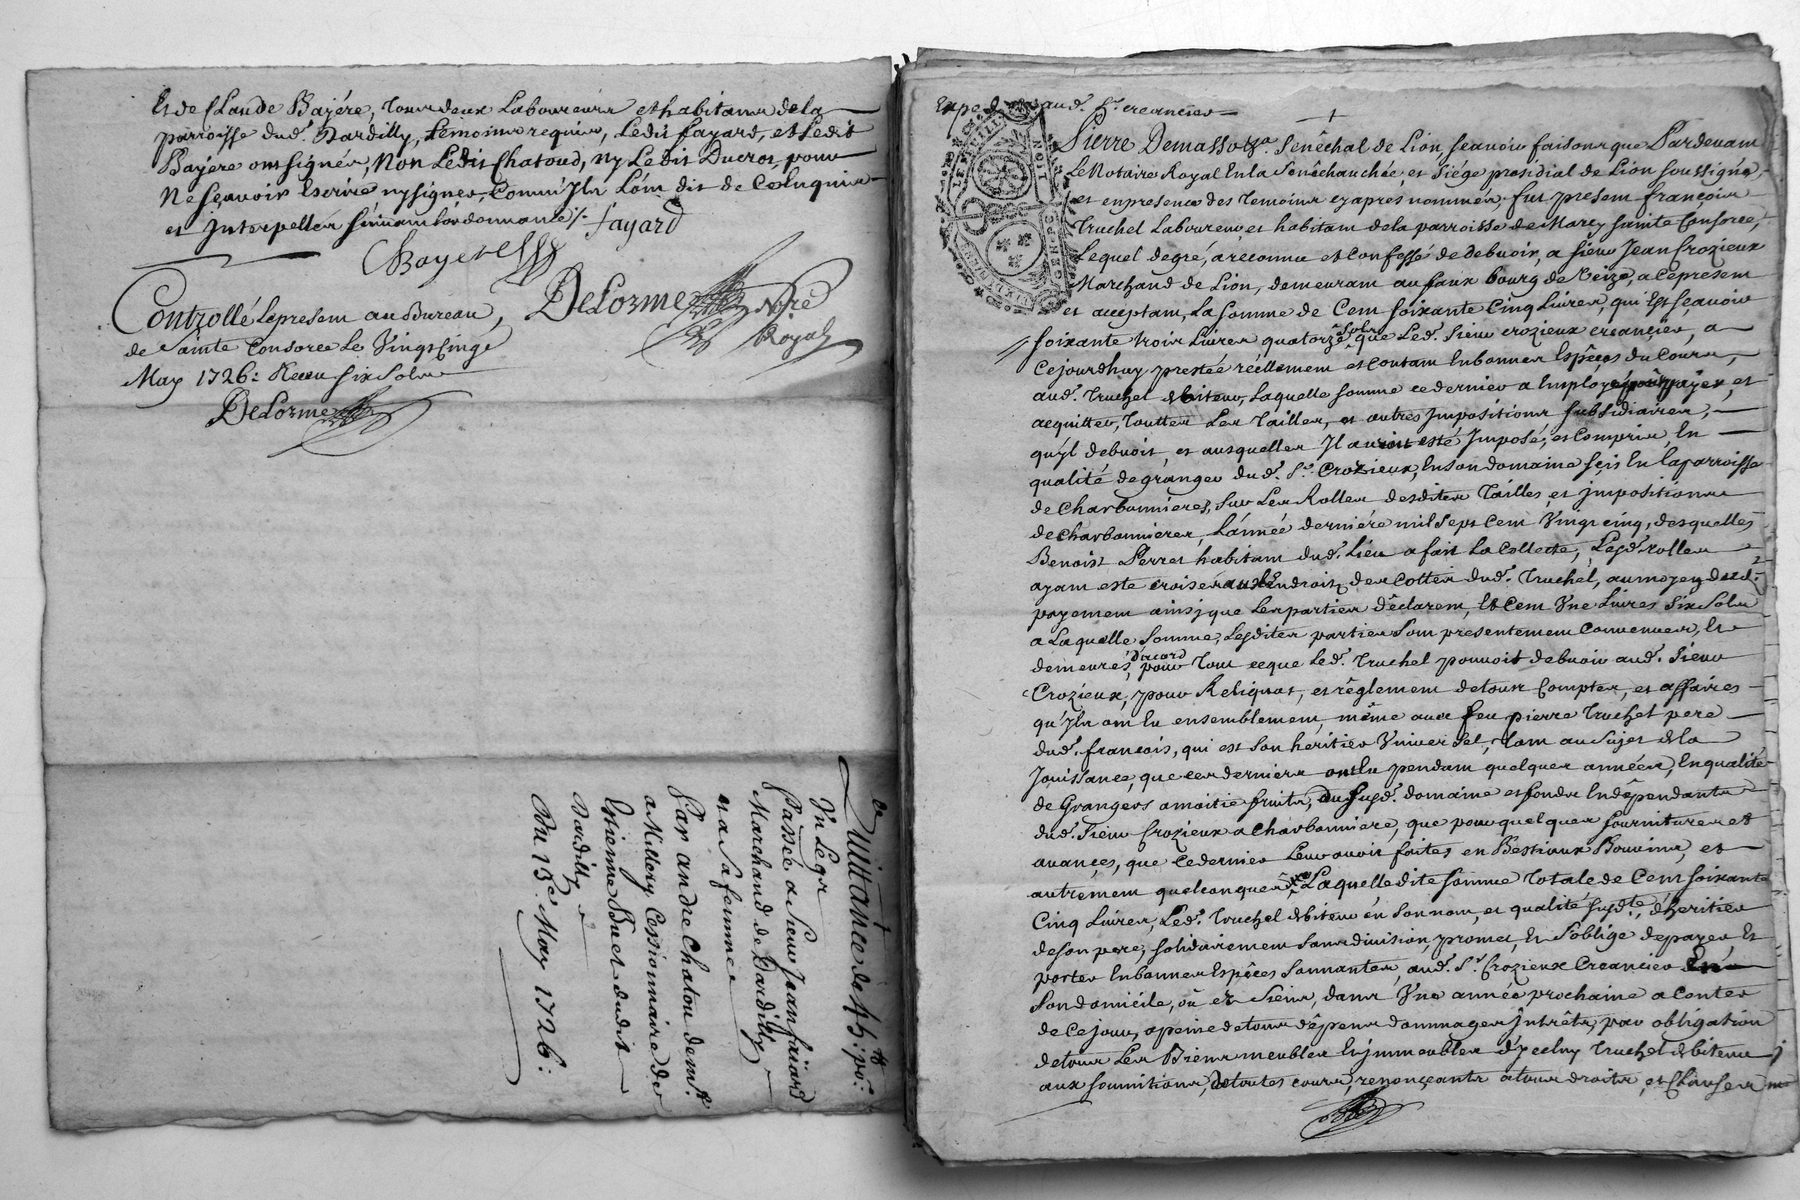 Et de Claude Bayére, Tous deux Laboureurs et habitans de la
parroisse dud. Dardilly, temoins requis, Ledit fayard, et Ledit
Bayére ont signés, Non Ledit Chatoud, ny Ledit Ducrot, pour
Ne sçavoir Escrire ny signer, Comm'Ils L'ont dit de ce Enquis
et Interpellés suivant L'ordonnance ./. fayard
Bayere
DeLorme Nre
Royal
Controllé Lepresent au Bureau,
de Sainte Consorce Le Vingt Cinq
May 1726: Receu six Sols
DeLorme
Quittance de 45 lt: po:
Passée a Sieur Jean faiard
Marchand de Dardilly
et a sa femme
Par andré Chatou demt.
a Millery Cessionnaire de
Estienne Buet dudit
Dardilly
Du 13e May 1726:
aud. Sr. creancier
Pierre Demasso Sénéchal de Lion, sçavoir faisons que Pardevant
Le Notaire Royal En la Sénéchauchée, et Siége presidial de Lion soussigné,
et en presence des Temoins cy aprés nommés, fut present françois
Truchet Laboureur, et habitant de la parroisse de Marcy Sainte Consorce,
Lequel de gré, a reconnu et Confessé de debvoir, a sieur Jean Crozieux
Marchand de Lion, demeurant au faux bourg de Veize, a ce present
et acceptant, La somme de Cent soixante Cinq Livres, qui Est sçavoir
soixante trois Livres quatorze sols que Led. Sieur crozieux creancier, a
Cejourdhuy prestée réëllement et contant En bonnes Espêces du Cours,
aud. Truchet debiteur, Laquelle somme ce dernier a Employé pour payer, et
acquitter, Touttes Les Tailles, et autres Impositions subsidiaires,
qu'Il debvoit, et ausquelles Il auroit esté Imposé, et Compris, En
qualité de granger dud. Sr. Crozieux, En son domaine scis En la parroisse
de Charbonnieres, sur Les Rolles desdites Tailles, et impositions
de Charbonnieres, L'année derniére mil sept Cent Vingt cinq, desquelles
Benoist Perret habitant dud. Lieu a fait La Collecte, Lesd. rolles
ayant esté croisés aux Endroits des Cottes dud. Truchet, au moyen dud.
payement ainsy que Les parties dêclarent, Et Cent Une Livres Six Sols
a Laquelle somme, Lesdites parties sont presentement Convenues, Et
demeures d'acord pour Tout ce que Led. Truchet pouvoit debvoir aud. Sieur
Crozieux, pour Reliquat, et rêglement de tous Comptes, et affaires
qu'Ils ont Eu ensemblement, même avec feu pierre Truchet pere
dud. françois, qui est son heritier Vniversel, Tant au Sujet de la
Jouissance, que ces derniers ont Eu pendant quelques années, En qualité
de Grangers a moitié fruits, du susd. domaine et fonds En dêpendants
dud. Sieur Crozieux a Charbonniere, que pour quelques fournitures et
avances, que ce dernier Leur avoit faites en Bestiaux Bouvins, et
autrement quelconques, Laquelle dite somme Totale de Cent soixante
Cinq Livres, Led. Truchet debiteur en son nom, et qualité susdte, d'heritier
de son pere, solidairement sans division, promet, Et s'oblige de payer, Et
porter En bonnes Espêces sonnantes, aud. Sr. Crozieux Creancier En
son domicile, ou es Siens, dans Vne année prochaine a Conter
de ce jour, a peine de tous dêpens dommages Intrêts, par obligation
de tous Les Biens meubles Et immeubles d'yceluy Truchet debiteur
aux soumitions, de toutes cours, renonçeants a tous droits, et Clauses